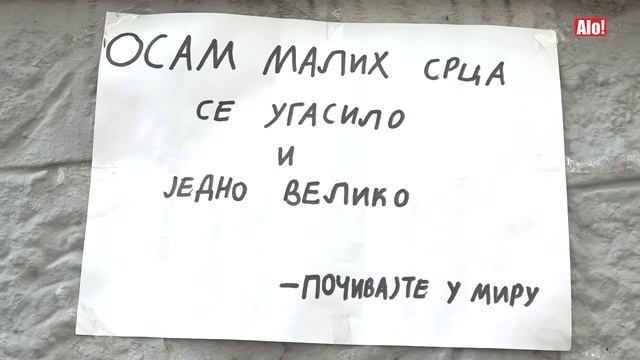 Alo!
ОСАМ МАЛИХ СРЦА
СЕ УГАСИЛО
И
ЈЕДНО ВЕЛИКО
–ПОЧИВАЈТЕ У МИРУ